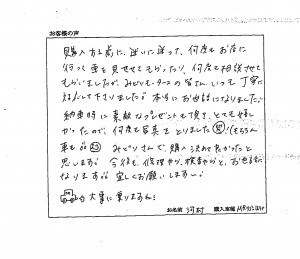 お客様の声
購入する前に、迷いに迷って、何度もお店に
行って車を見せてもらったり、何度も相談させて
もらいましたが、みどりモータースの皆さん、いつも丁寧に
対応して下さりました。本当にお世話になりました。
納車時に素敵なプレゼントも頂き、とても嬉し
かったので、何度も写真をとりました(もちろん
車も
みどりさんで、購入決めて良かったと
思います。今後も、修理やり、検査やらと、お世話に
なります。宜しくお願いします。
大事に乗りますね!
お名前 河村
購入車種